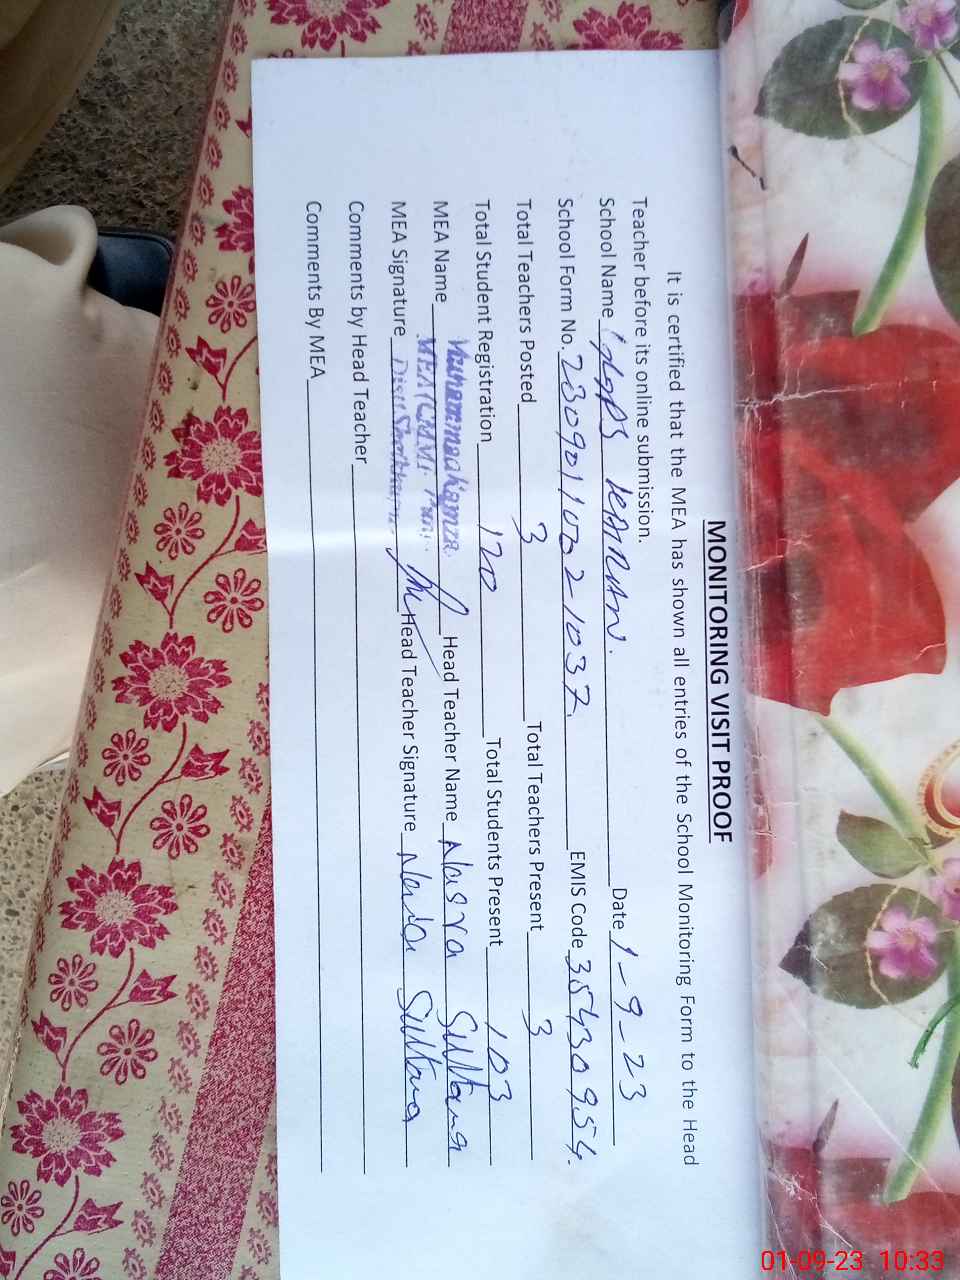 MONITORING VISIT PROOF
It is certified that the MEA has shown all entries of the School Monitoring Form to the Head
Teacher before its online submission.
School Name GGPS KARRAN. Date 1-9-23
School Form No. 23090110021037. EMIS Code 35430954.
Total Teachers Posted 3 Total Teachers Present 3
Total Student Registration 120 Total Students Present 103
MEA Name Muhammad Hamza Head Teacher Name Nasra Sultana
MEA
MEA Signature Head Teacher Signature Sultana
Comments by Head Teacher
Comments By MEA
01-09-23 10:33